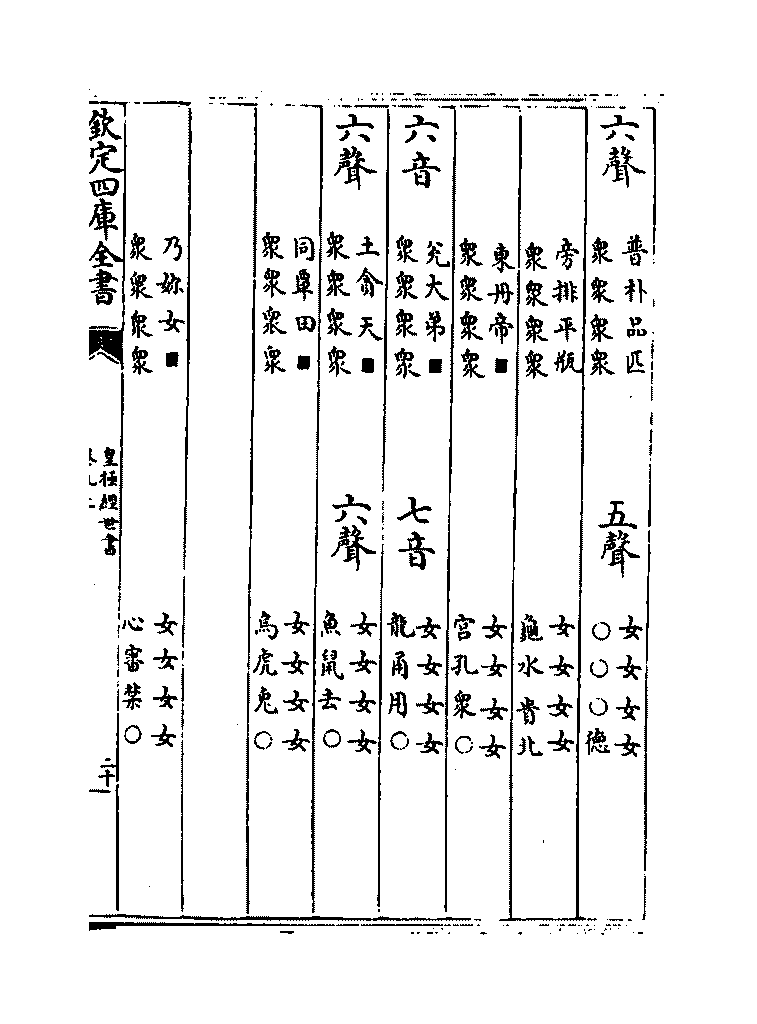 六聲
普朴品匹
衆衆衆衆
五聲
女女女女
○○○德
旁排平瓶
衆衆衆衆
女女女女
龜水貴北
東丹帝■
衆衆衆衆
女女女女
宮孔衆○
六音
兊大弟■
衆衆衆衆
七音
女女女女
龍甬用○
六聲
土貪天■
衆衆衆衆
六聲
女女女女
魚鼠去○
同覃田■
衆衆衆衆
女女女女
烏虎兎○
乃妳女■
衆衆衆衆
女女女女
心審禁○
欽定四庫全書
皇極經世書
二十